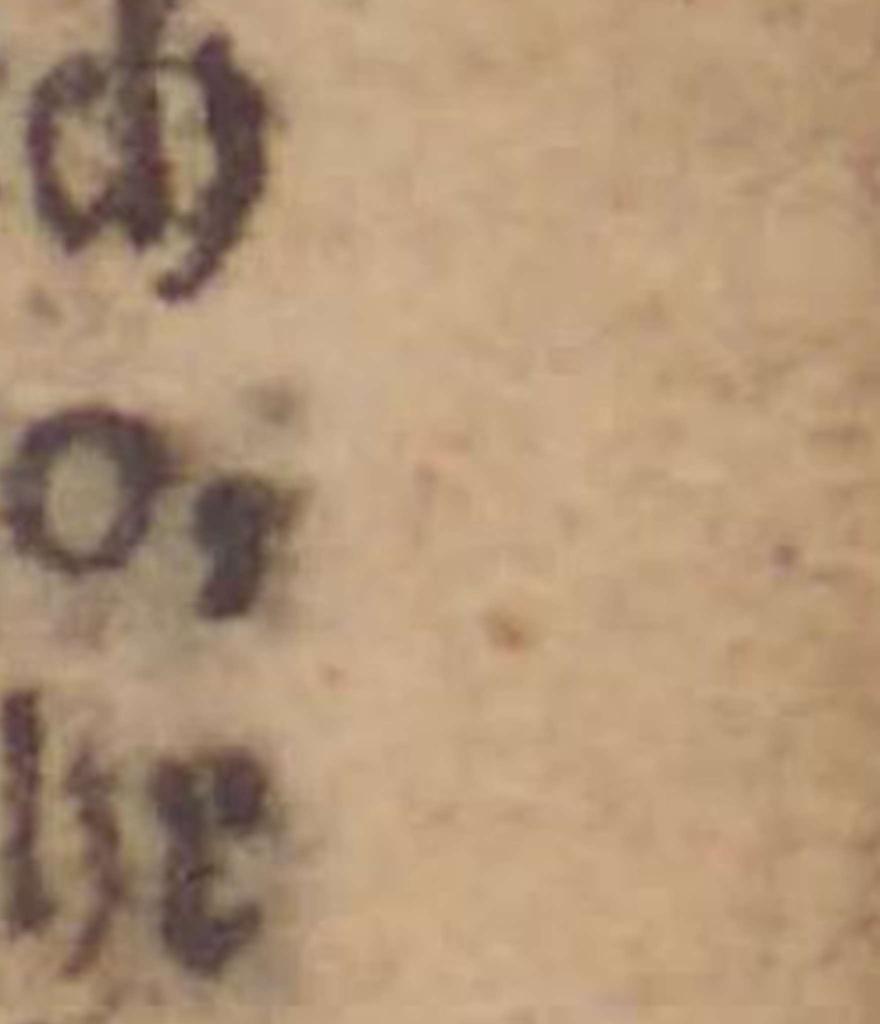 ch
or
he